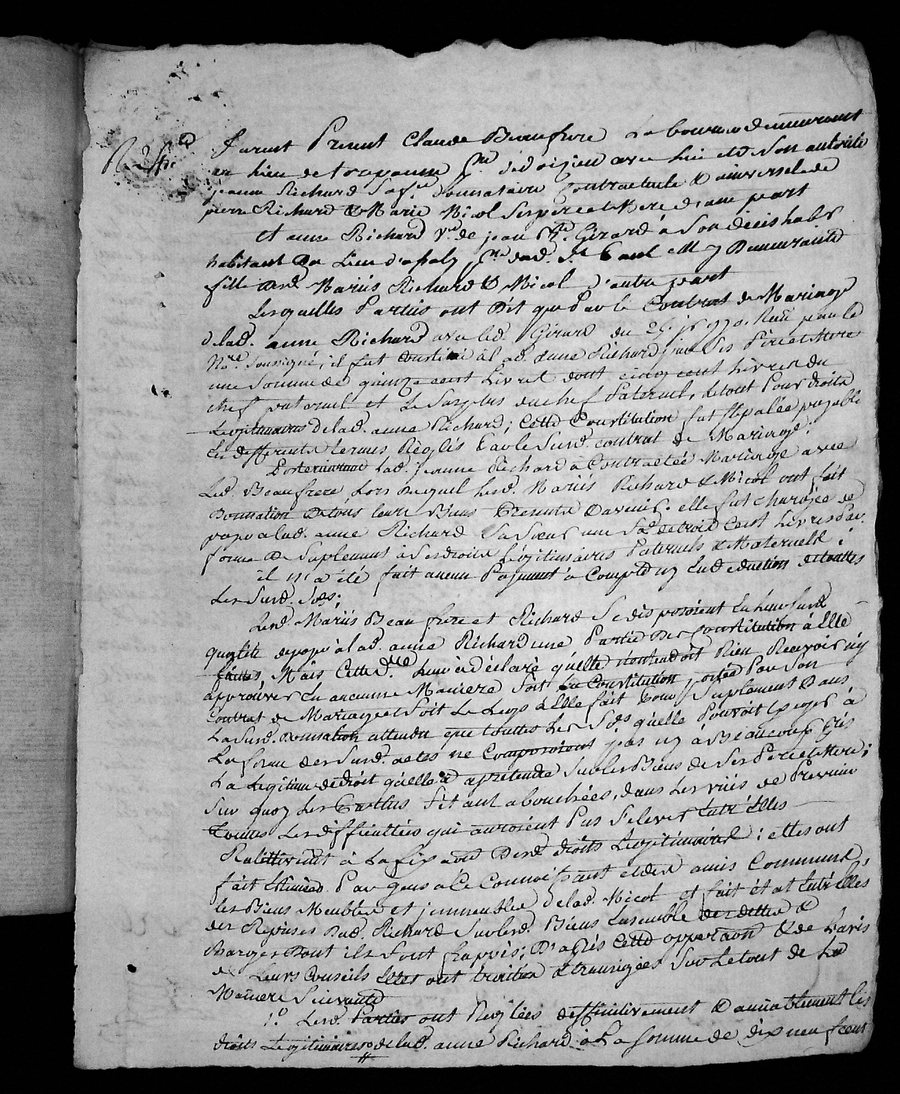 furent Present Claude Beaufrere Laboureur demeurant
au lieu de avec lui et de Son autorité
jeanne Richard Sa f.e Donnataire Contractuele & universele de
pierre Richard & Marie Nicol Ses pere et Mere d'une part
et anne Richard V.e de jean Girard à Son decès hab.
habitant Du Lieu d' p.sse dud. St. Paul Demeurante
fille desd. Mariés Richard & Nicol d'autre part
Lesquelles Parties ont Dit que Par le Contrat de Mariage
de lad. anne Richard avec led. Girard du Reçu par le
No.re Soussigné, il fut Constitué à lad. anne Richard par Ses Pere et Mere
une Somme de quinze cent Livres dont cinq cent Livres du
chef maternel et Le Surplus du chef Paternel, le tout Pour droits
Legitimaires de lad. anne Richard; Cette Constitution fut Stipulée payable
En differents termes Reglés Par le Susd. contrat de Mariage.
Posterieurem.t lad. Jeanne Richard a Contractée Mariage avec
Led. Beaufrere Lors duquel lesd. Mariés Richard & Nicol ont fait
Donnation De tous leurs Biens Presents & avenir; elle fut Chargée de
payer à lad. anne Richard Sa Sœur une S.e de trois Cent Livres Par
forme De Suplement à Ses droits Legitimaires Paternels & Maternels;
il n'a été fait aucun Payement à Compte ny En deduction de touttes
Les Susd. S.es;
Lesd. Mariés Beaufrere et Richard Se disposoient En leur Susd.
qualité de payer à lad. anne Richard une Partie Des Constitution à Elle
faites, Mais Cette d.re leur a déclaré qu'elle n'entendoit Rien Recevoir ny
approuver En aucune Maniere Soit La Constitution portée Par Son
Contrat de Mariage et Soit Le Legs à Elle fait Pour Suplement Dans
La Susd. Donnation attendu que touttes Les S.es qu'elle Pouvoit exiger à
La forme des Susd. actes ne Composoient pas ny à Beaucoup Près
La Legitime de droit qu'elle a à pretendre Sur les Biens de Ses Pere et Mere;
Sur quoy Les Parties S'etant abouchées, dans Les vües de Prevenir
touttes Les difficultées qui auroient Pus S'elever Entr'Elles
Relativement à La fixation Desd. droits Legitimaires: elles ont
fait Estimer Par gens à Ce Connoissant et des amis Communs
les Biens Meubles et jmmeubles de lad. Nicol et fait état Entr'Elles
des Reprises Dud. Richard Sur lesd. Biens Ensemble des dettes &
Charges Dont ils Sont frappés; D'après Cette opperaon & de l'avis
de Leurs Conseils Elles ont traitées & transigées Sur Le tout de La
Maniere Suivante
1.o Lesd. Parties ont Reglées deffinitivement & amiablement les
droits Legitimaires de lad. anne Richard à La Somme de dix neuf cent